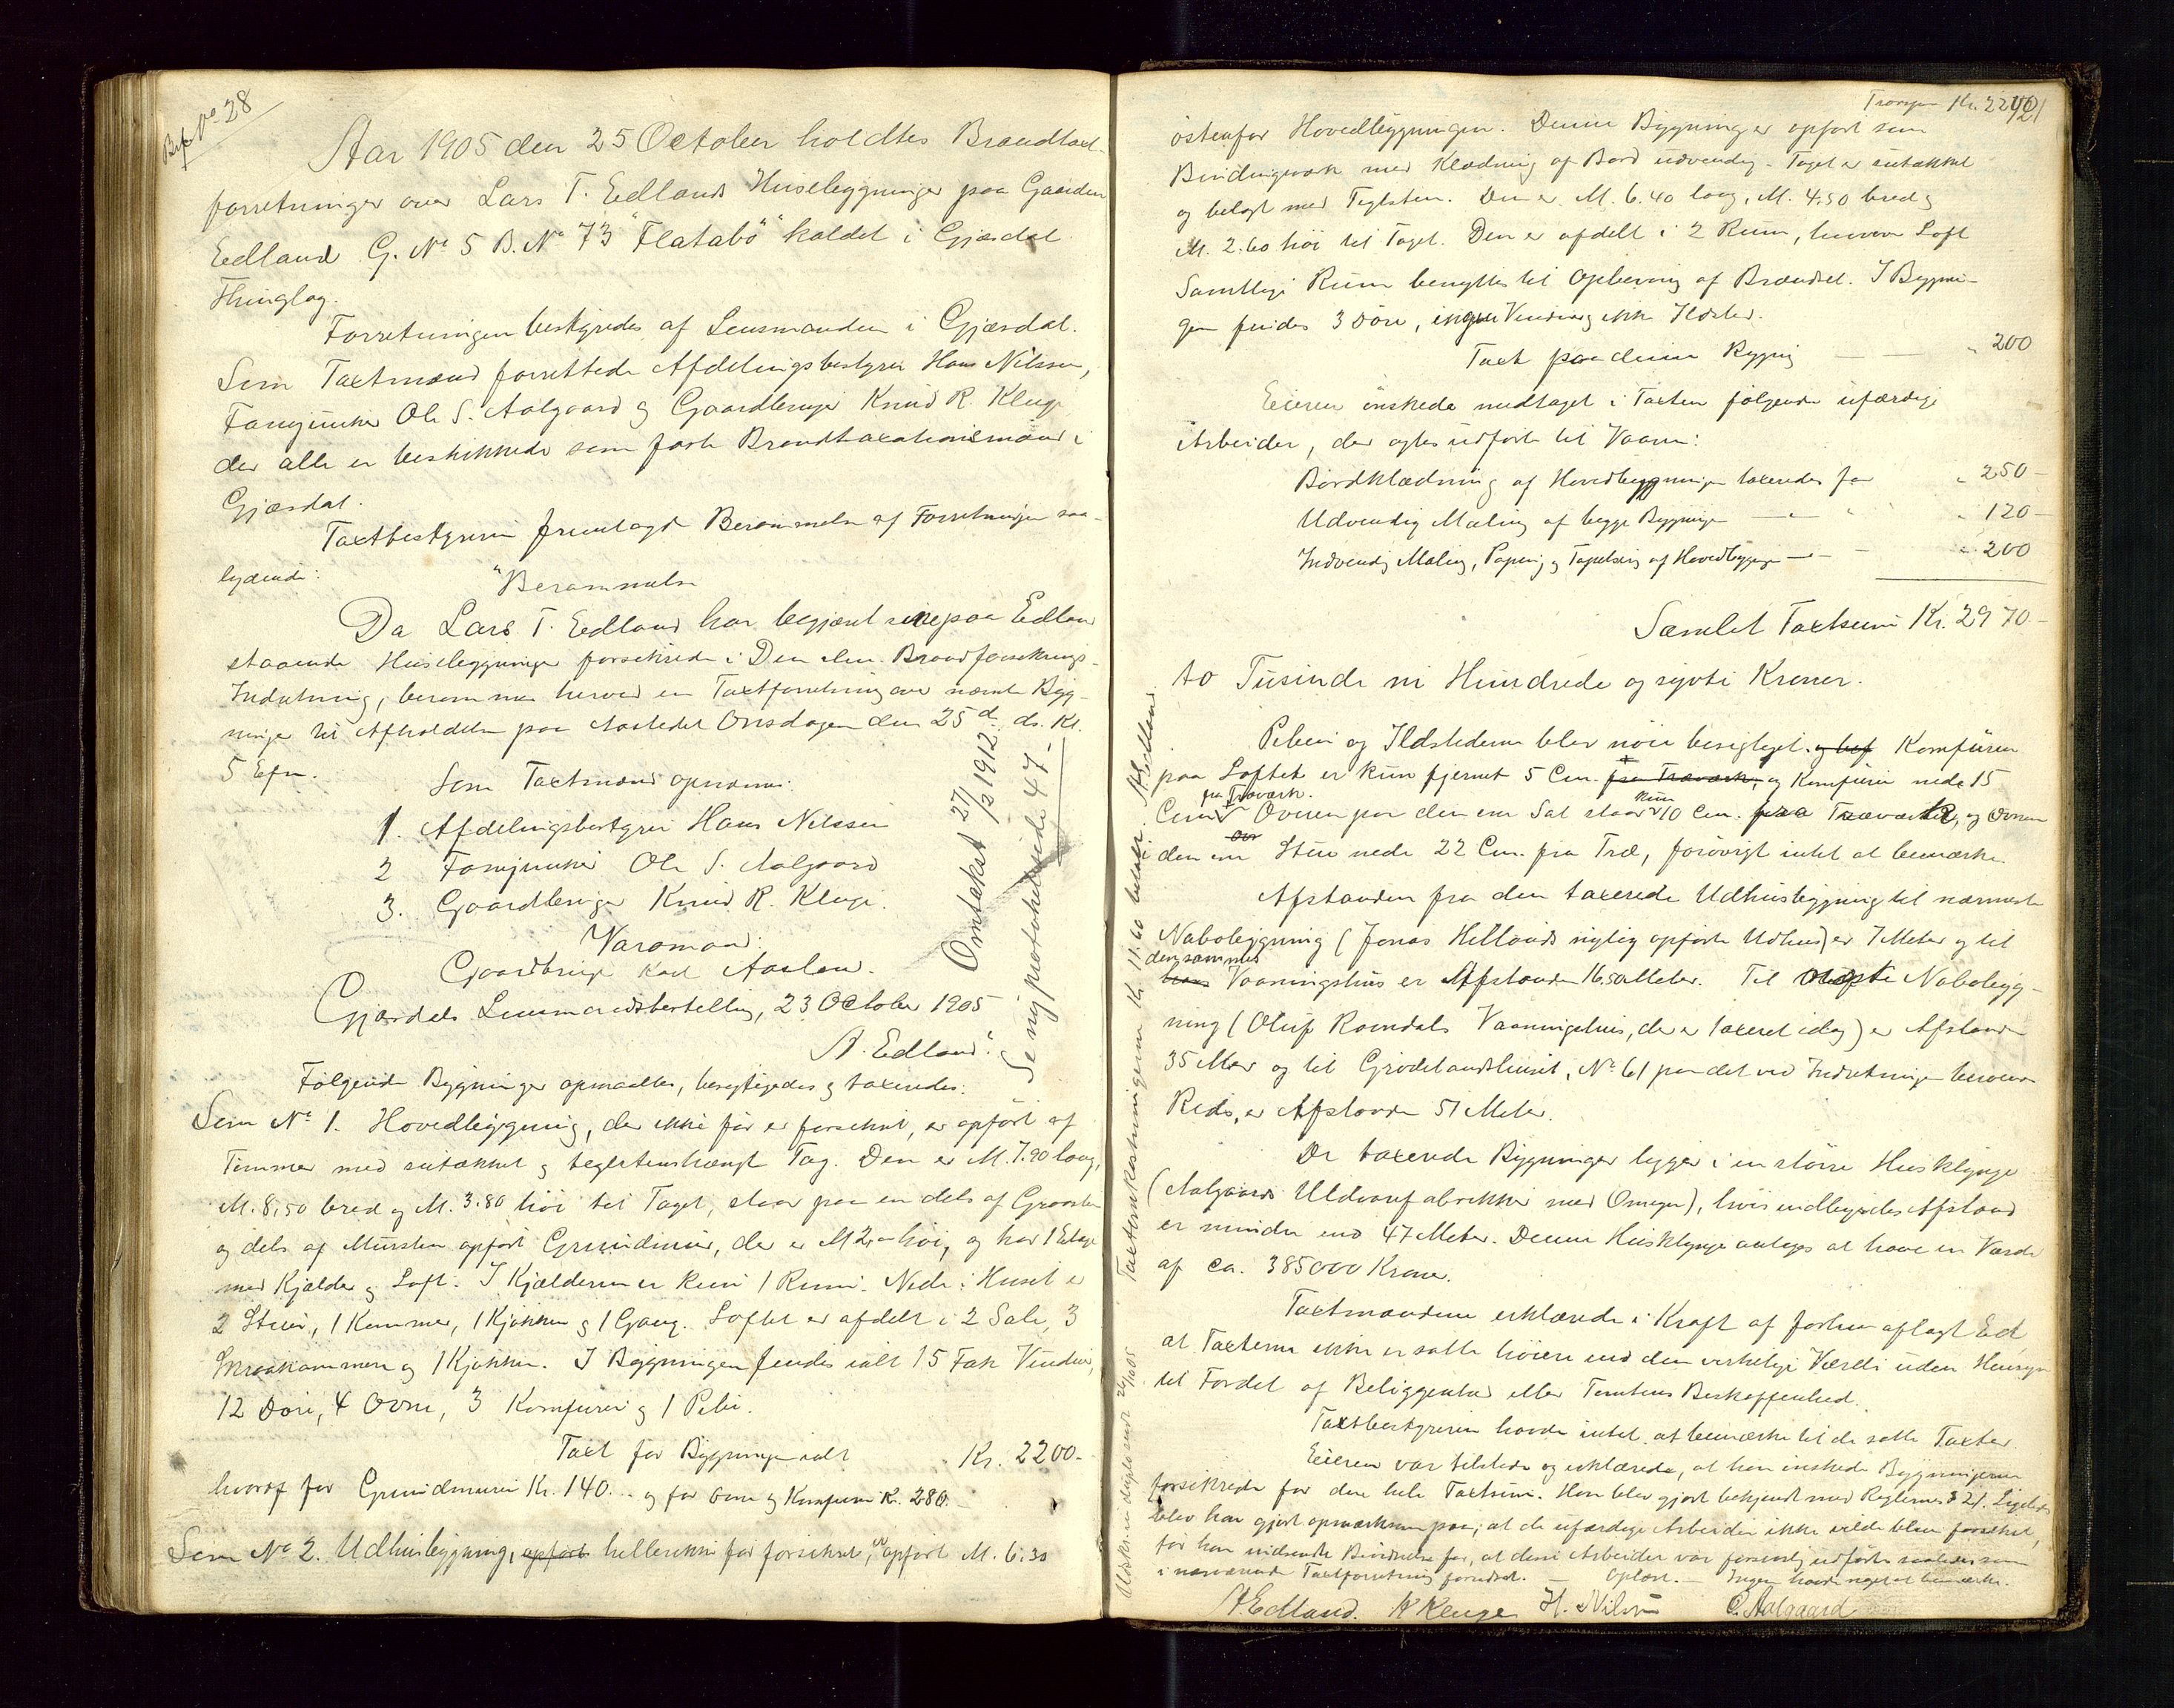 Brp No 28
Aar 1905 den 25 October holdtes Brandtaxt-
forretninger over Lars T. Edlands Husebygninger paa Gaarden
Edland G. No 5 B. No 73 "Flatabö" kaldet i Gjæsdal
Thinglag.
Forretningen bestyredes af Lensmanden i Gjæsdal.
Som Taxtmænd forrettede Afdelingsbestyrer Hans Nilssen,
Ole S. Aalgaard og Gaardbruger Knud R. Kluge
der alle er beskikkede som faste Brandtaxationsmænd i
Gjæsdal.
Taxtbestyreren fremlagde Berammelse af Forretningen saa-
lydende:
"Berammelse
Da Lars T. Edland har begjært sine paa Edland
staaende Husebygninger forsikrede i Den alm. Brandforsikrings-
Indretning, berammes herved en Taxtforretning over nævnte Byg-
ninger til Afholdelse paa Aastedet Onsdagen den 25de ds. Kl.
5 Efm.
Som Taxtmænd opnævnes:
1. Afdelingsbestyrer Hans Nilssen
2 Ole S. Aalgaard
3. Gaardbruger Knud R. Kluge.
Varamand:
Gaardbruger Karl Aaslan.
Gjæsdals Lensmandsbestilling, 23 October 1905
A. Edland."
Omtakst 27/12 1912
Se ny protokol side 47
Følgende Bygninger opmaaltes, besigtigedes og taxeredes:
Som No 1. Hovedbygning, der ikke før er forsikret, er opført af
Tømmer med sutækket og teglstenshængt Tag. Den er M. 7.90 lang,
M. 8,50 bred og M. 3.80 høi til Taget, staar paa en dels af Graasten
og dels af Mursten opført Grundmur, der er M 2,- høi, og har 1 Etage
med Kjælder og Loft. I Kjælderen er kun 1 Rum. Nede i Huset er
2 Stuer, 1 Kammer, 1 Kjøkken og 1 Gang. Loftet er afdelt i 2 Sale, 3
Skraakammere og 1 Kjøkken. I Bygningen findes ialt 15 Fak Vinduer,
12 Døre, 4 Ovne, 3 Komfurer og 1 Pibe.
Taxt for Bygningen ialt Kr. 2200.-
hvoraf for Grundmuren Kr. 140.- og for Ovne og Komfurer Kr. 280.-
Som No 2. Udhusbygning, opført hellerikke før forsikret, er opført M. 6.30
Transp. Kr. 2200 421
østenfor Hovedbygningen. Denne Bygning er opført som
Bindingsværk med Klædning af Bord udvendig. Taget er sutækket
og belagt med Teglsten. Den er M. 6.40 lang, M. 4.50 bred og
M. 2.60 høi til Taget. Den er afdelt i 2 Rum, hvorover Loft
Samtlige Rum benyttes til Opbevaring af Brændsel. I Bygnin-
gen findes 3 Döre, ingen Vinduer og ikke Ildsted.
Taxt paa denne Bygning " 200
Eieren ønskede medtaget i Taxten følgende uferdige
Arbeider, der agtes udført til Vaaren:
Bordklædning af Hovedbygningen taxeredes for " 250-
Udvendig Maling af begge Bygninger " 120-
Indvendig Maling, Paping og Tapetsering af Hovedbygningen " 200
Samlet Taxtsum Kr. 2970-
to Tusinde ni Hundrede og sytti Kroner.
Piben og Ildstederne blev nøie besigtiget. og bef Komfuren
paa Loftet er kun fjernet 5 Cm. fra Træværk, og Komfuren nede 15
Cm fra Træværk. Ovnen paa den ene Sal staar kun 10 Cm. fra Træværket, og Ovnen
i den ene Stue nede 22 Cm. fra Træ, forøvrigt intet at bemærke.
Afstanden fra den taxerede Udhusbygning til nærmeste
Nabobygning (Jonas Hellands nylig opførte Udhus) er 7 Meter og til
hans densammes Vaaningshus er Afstanden 16,50 Meter. Til næste Nabobygg-
ning (Oluf Ramdals Vaaningshus, der er taxeret idag) er Afstanden
35 Meter og til Grødelandshuset, No 61 paa det ved Indretningen beroende
Rids, er Afstanden 51 Meter.
De taxerede Bygninger ligger i en større Husklynge
(Aalgaards Uldvarefabrikker med Omegn), hvis indbyrdes Afstand
er mindre end 47 Meter. Denne Husklynge antages at have en Værdi
af ca. 385000 Kroner.
Taxtmændene erklærede i Kraft af forhen aflagt Ed
at Taxterne ikke er satte høiere end den virkelige Værdi uden Hensyn
til Fordel af Beliggenhed eller Tomtens Beskaffenhed.
Taxtbestyreren havde intet at bemærke til de satte Taxter
Eieren var tilstede og erklærede, at han ønskede Bygningerne
forsikrede for den hele Taxtsum. Han blev gjort bekjendt med Reglernes § 21. Ligeledes
blev han gjort opmærksom paa, at de uferdige Arbeider ikke vilde blive forsikret,
før han indsendte Bevidnelse for, at disse Arbeider var forsvarlig udførte saaledes som
i nærværende Taxtforretning forudsat. - Oplæst. - Ingen havde noget at bemærke.
A. Edland. K Kluge H. Nilssen O. Aalgaard
Udskr. in duplo sendt 26/10 05 Taxtomkostningerne Kr. 11.60 betalt. A Edland